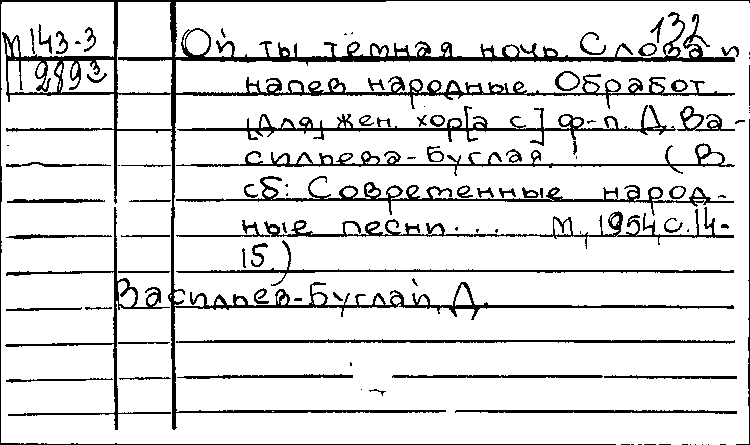 132
М 143-3
289 3
Ой, ты, тёмная ночь. Слова и
напев народные. Обработ.
[для] жен. хор[а с] ф-п. Д. Ва-
сильева-Буглая. (В
сб: Современные народ-
ные песни... М., 1954, с. 14-
15.)
Васильев-Буглай, Д.